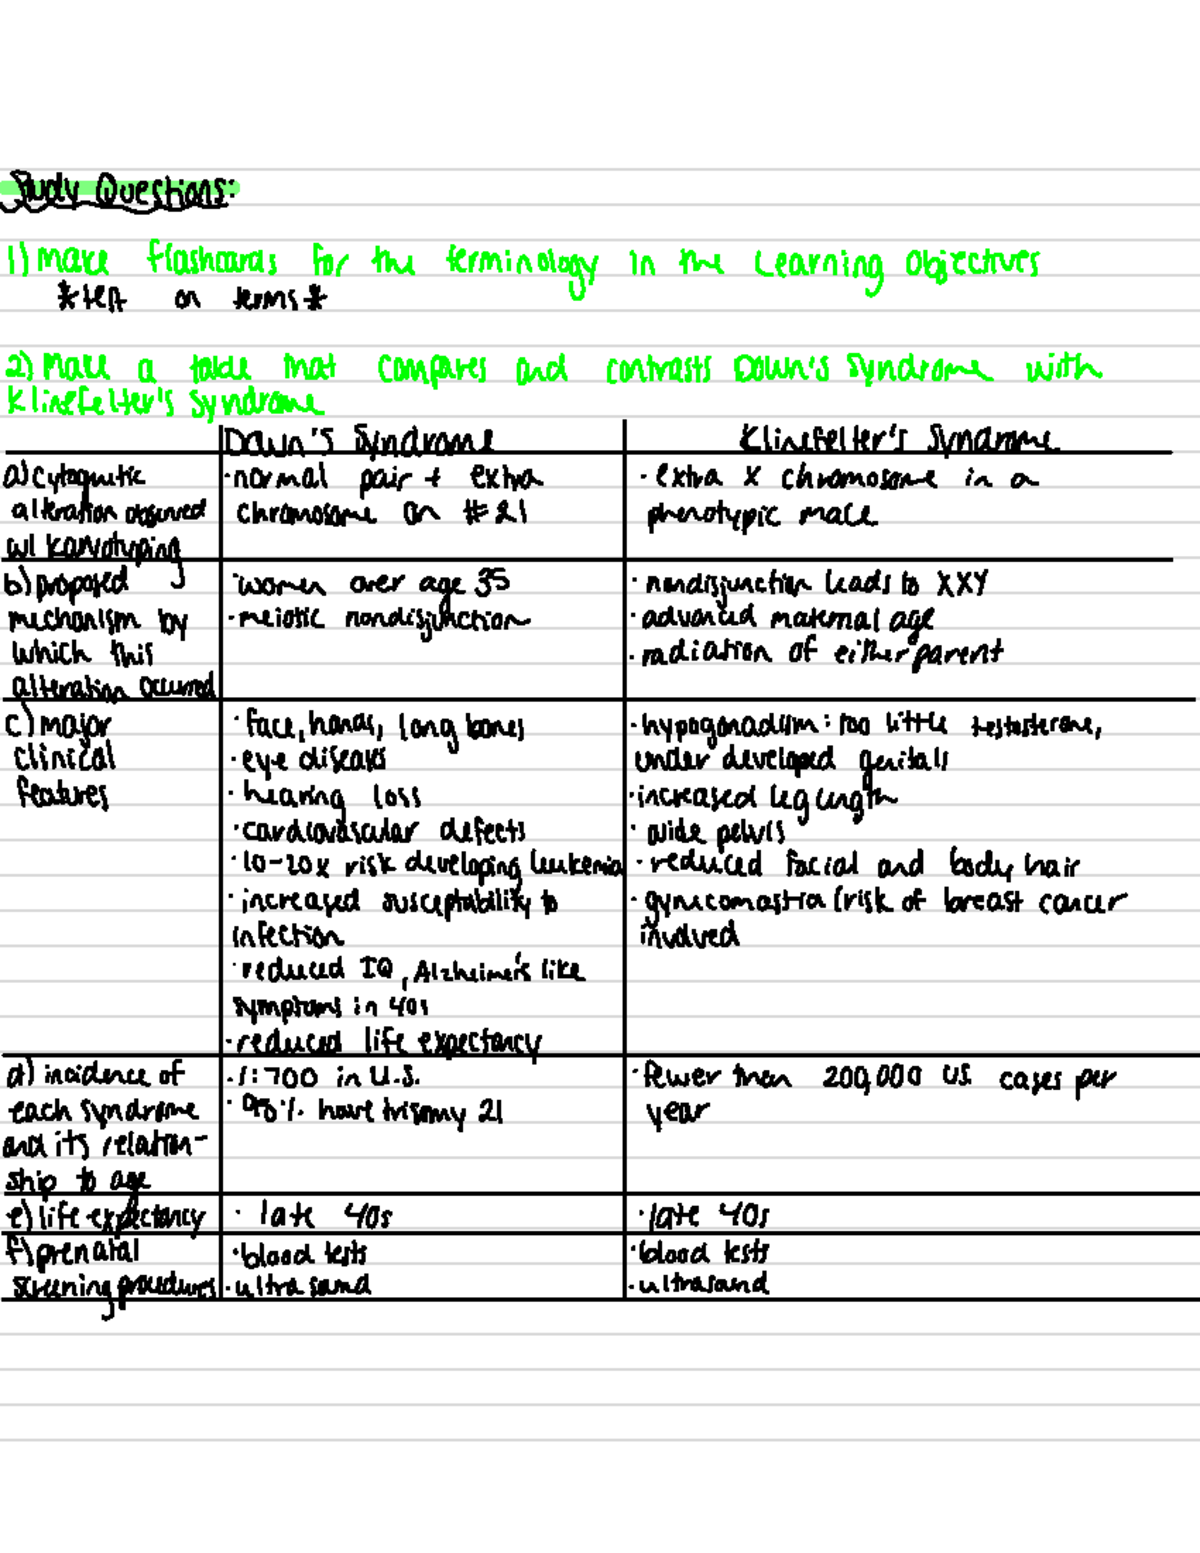 Study Questions:
1) Make flashcards for the terminology in the Learning Objectives
*test on terms*
2) Make a table that compares and contrasts Down's Syndrome with
Klinefelter's Syndrome
Down's Syndrome
Klinefelter's Syndrome
a) cytognetic
alteration observed
w/ karyotyping
·normal pair + extra
chromosome on #21
·extra X chromosome in a
phenotypic male
b) proposed
mechanism by
which this
alteration occurred
·women over age 35
·meiotic nondisjunction
·nondisjunction leads to XXY
·advanced maternal age
·radiation of either parent
c) major
clinical
features
·face, hands, long bones
·eye diseases
·hearing loss
·cardiovascular defects
·10-20x risk developing leukemia
·increased susceptability to
infection
·reduced IQ, Alzheimer's like
symptoms in 40s
·reduced life expectancy
·hypogonadism: too little testosterone,
under developed genitals
·increased leg length
·wide pelvis
·reduced facial and body hair
·gynecomastia (risk of breast cancer
involved
d) incidence of
each syndrome
and its relation-
ship to age
·1:700 in U.S.
·95% have trisomy 21
·fewer than 200,000 US cases per
year
e) life expectancy
·late 40s
·late 40s
f) prenatal
screening procedures
·blood tests
·ultrasound
·blood tests
·ultrasound